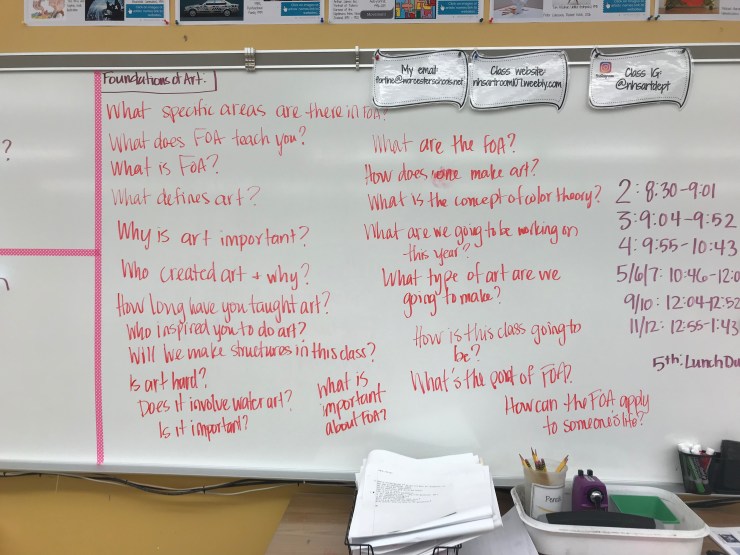 My email:
fortine@worcesterschools.net
Class website:
nhsartroom107.weebly.com
Class IG:
@nhsartdept
Foundations of Art.
What specific areas are there in FOA?
What does FOA teach you?
What is FOA?
What defines art?
Why is art important?
Who created art + why?
How long have you taught art?
Who inspired you to do art?
Will we make structures in this class?
Is art hard?
Does it involve water art?
Is it important?
What is
important
about FOA?
What are the FOA?
How does one make art?
What is the concept of color theory?
What are we going to be working on
this year?
What type of art are we
going to make?
How is this class going to
be?
What's the point of FOA?
How can the FOA apply
to someone's life?
2: 8:30-9:01
3: 9:04-9:52
4: 9:55-10:43
5/6/7: 10:46-12:0
9/10: 12:04-12:52
11/12: 12:55-1:43
5th: Lunch Du
?